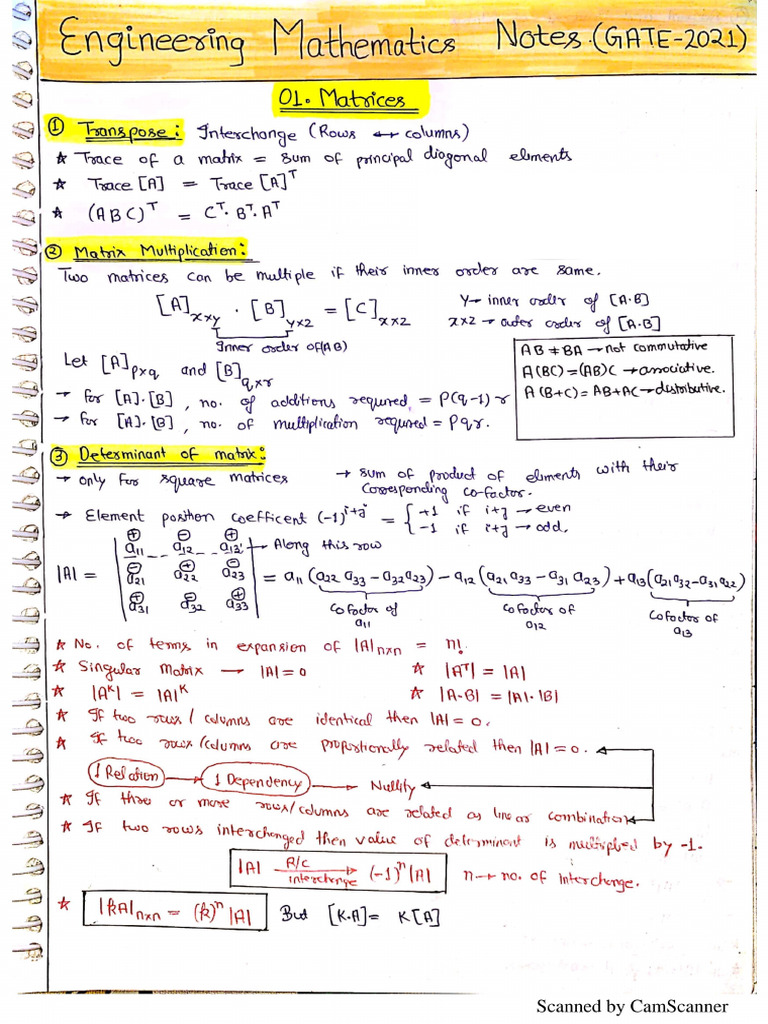 Engineering Mathematics Notes (GATE-2021)
01. Matrices
① Transpose: Interchange (Rows ↔ columns)
★ Trace of a matrix = sum of principal diagonal elements
★ Trace [A] = Trace [A]ᵀ
★ (ABC)ᵀ = Cᵀ. Bᵀ. Aᵀ
② Matrix Multiplication:
Two matrices can be multiple if their inner order are same.
[A]x×y . [B]y×z = [C]x×z
Y → inner order of [A·B]
x×z → outer order of [A·B]
Inner order of (AB)
AB ≠ BA → not commutative
A(BC) = (AB)C → associative.
A(B+C) = AB+AC → distributive.
Let [A]p×q and [B]q×r
→ for [A].[B], no. of additions required = P(q-1) r
→ for [A].[B], no. of multiplication required = Pqr.
③ Determinant of matrix:
→ only for square matrices → sum of product of elements with their
corresponding co-factor.
→ Element position coefficent (-1)^(i+j) = { +1 if i+j → even
-1 if i+j → odd,
|A| = | ⊕a11 ⊖a12 ⊕a13 | → Along this row
| ⊖a21 ⊕a22 ⊖a23 | = a11 (a22 a33 - a32 a23) - a12 (a21 a33 - a31 a23) + a13 (a21 a32 - a31 a22)
| ⊕a31 ⊖a32 ⊕a33 |
cofactor of a11 cofactor of a12 cofactor of a13
★ No. of terms in expansion of |A|n×n = n!
★ Singular Matrix → |A| = 0 ★ |Aᵀ| = |A|
★ |Aᴷ| = |A|ᴷ ★ |A·B| = |A|·|B|
★ If two rows / columns are identical then |A| = 0.
★ If two rows/columns are proportionally related then |A| = 0.
1 Relation → 1 Dependency → Nullity
★ If three or more rows/columns are related as linear combination
★ If two rows interchanged then value of determinant is multiplied by -1.
|A| R/C interchange → (-1)ⁿ |A| n → no. of interchange.
★ |kA|n×n = (k)ⁿ |A| But [K.A] = K[A]
Scanned by CamScanner